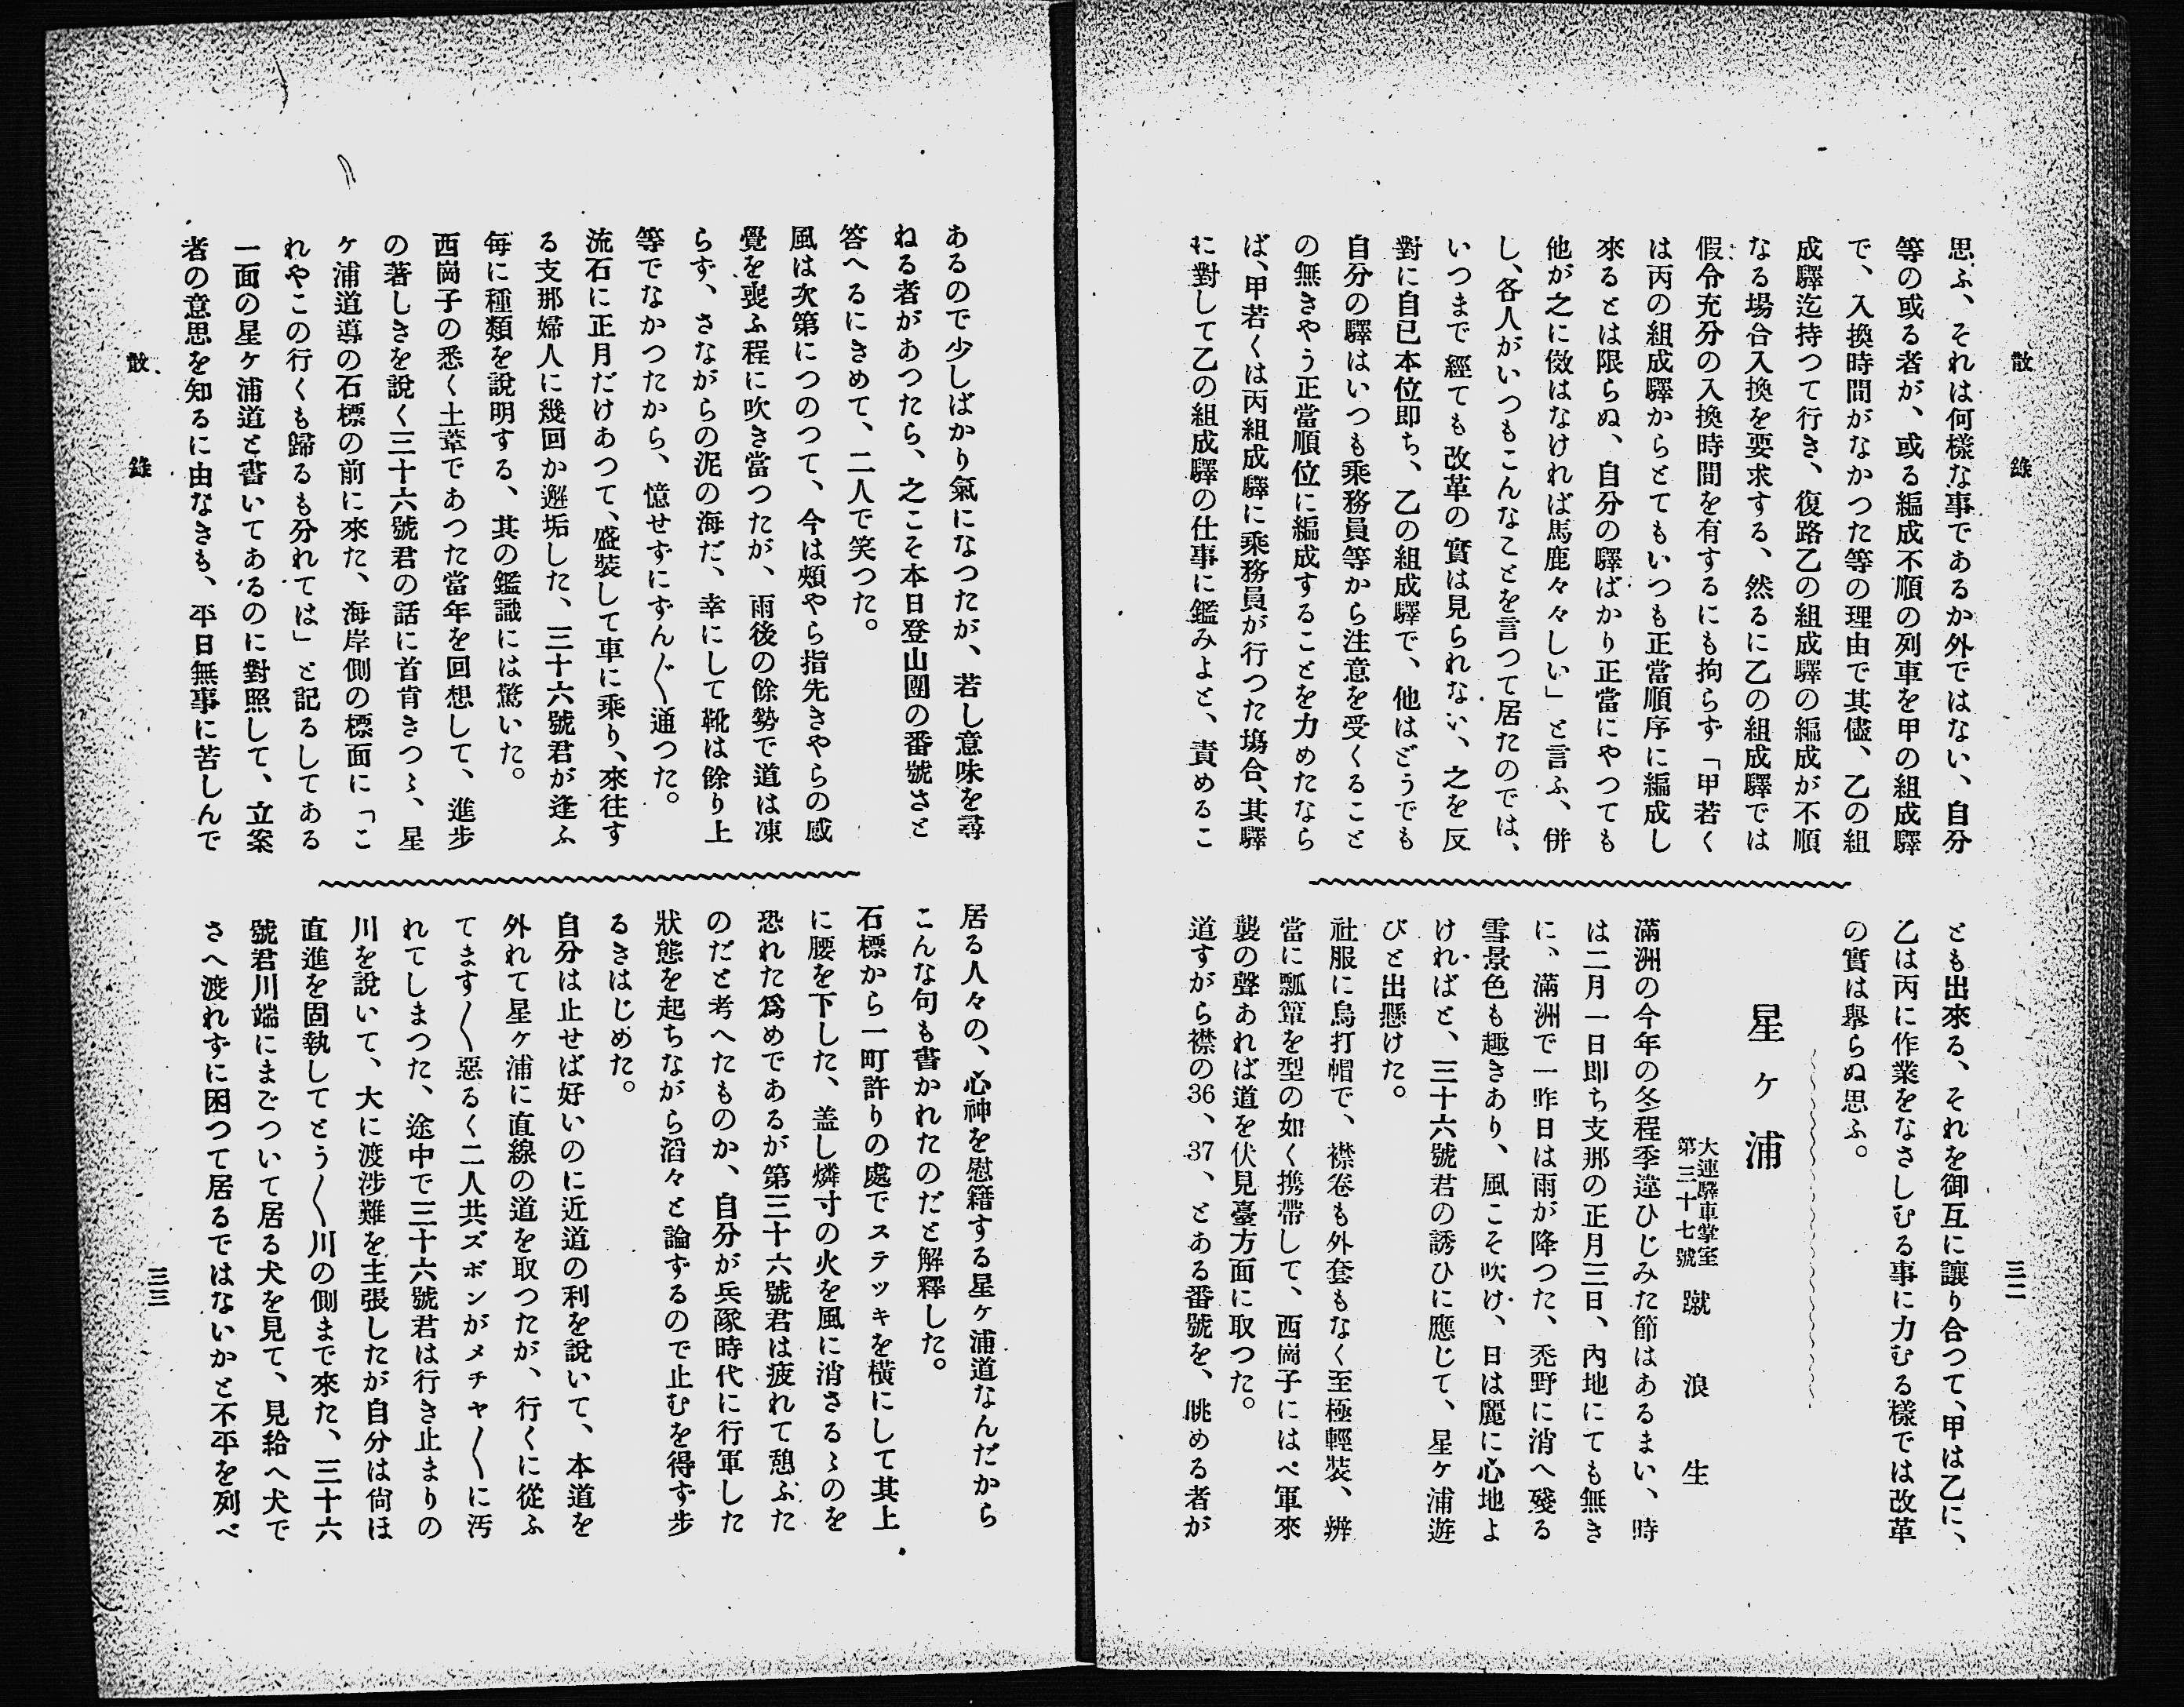 散錄
三二
思ふ、それは何樣な事であるか外ではない、自分
等の或る者が、或る編成不順の列車を甲の組成驛
で、入換時間がなかつた等の理由で其儘、乙の組
成驛迄持つて行き、復路乙の組成驛の編成が不順
なる場合入換を要求する、然るに乙の組成驛では
假令充分の入換時間を有するにも拘らず「甲若く
は丙の組成驛からとてもいつも正當順序に編成し
來るとは限らぬ、自分の驛ばかり正當にやつても
他が之に傚はなければ馬鹿々々しい」と言ふ、併
し、各人がいつもこんなことを言つて居たのでは、
いつまで經ても改革の實は見られない、之を反
對に自已本位即ち、乙の組成驛で、他はどうでも
自分の驛はいつも乘務員等から注意を受くること
の無きやう正當順位に編成することを力めたなら
ば、甲若くは丙組成驛に乘務員が行つた塲合、其驛
に對して乙の組成驛の仕事に鑑みよと、責めるこ
とも出來る、それを御互に讓り合つて、甲は乙に、
乙は丙に作業をなさしむる事に力むる樣では改革
の實は擧らぬ思ふ。
星ヶ浦
大連驛車掌室
第三十七號
蹴浪生
滿洲の今年の冬程季違ひじみた節はあるまい、時
は二月一日即ち支那の正月三日、內地にても無き
に、滿洲で一昨日は雨が降つた、禿野に消へ殘る
雪景色も趣きあり、風こそ吹け、日は麗に心地よ
ければと、三十六號君の誘ひに應じて、星ヶ浦遊
びと出懸けた。
社服に烏打帽で、襟卷も外套もなく至極輕裝、辨
當に瓢簞を型の如く携帶して、西崗子にはペ軍來
襲の聲あれば道を伏見臺方面に取つた。
道すがら襟の36、37、とある番號を、眺める者が
あるので少しばかり氣になつたが、若し意味を尋
ねる者があつたら、之こそ本日登山團の番號さと
答へるにきめて、二人で笑つた。
風は次第につのつて、今は頰やら指先きやらの感
覺を喪ふ程に吹き當つたが、雨後の餘勢で道は凍
らず、さながらの泥の海だ、幸にして靴は餘り上
等でなかつたから、憶せずにずん〲通つた。
流石に正月だけあつて、盛裝して車に乘り、來往す
る支那婦人に幾回か邂垢した、三十六號君が逢ふ
每に種類を說明する、其の鑑識には驚いた。
西崗子の悉く土葦であつた當年を回想して、進步
の著しきを說く三十六號君の話に首肯きつゝ、星
ヶ浦道導の石標の前に來た、海岸側の標面に「こ
れやこの行くも歸るも分れては」と記るしてある
一面の星ヶ浦道と書いてあるのに對照して、立案
者の意思を知るに由なきも、平日無事に苦しんで
居る人々の、心神を慰籍する星ヶ浦道なんだから
こんな句も書かれたのだと解釋した。
石標から一町許りの處でステッキを橫にして其上
に腰を下した、盖し燐寸の火を風に消さるゝのを
恐れた爲めであるが第三十六號君は疲れて憩ふた
のだと考へたものか、自分が兵隊時代に行軍した
狀態を起ちながら滔々と論ずるので止むを得ず步
るきはじめた。
自分は止せば好いのに近道の利を說いて、本道を
外れて星ヶ浦に直線の道を取つたが、行くに從ふ
てます〱惡るく二人共ズボンがメチャ〱に汚
れてしまつた、途中で三十六號君は行き止まりの
川を說いて、大に渡涉難を主張したが自分は尙ほ
直進を固執してとう〱川の側まで來た、三十六
號君川端にまごついて居る犬を見て、見給へ犬で
さへ渡れずに困つて居るではないかと不平を列べ
散錄
三三